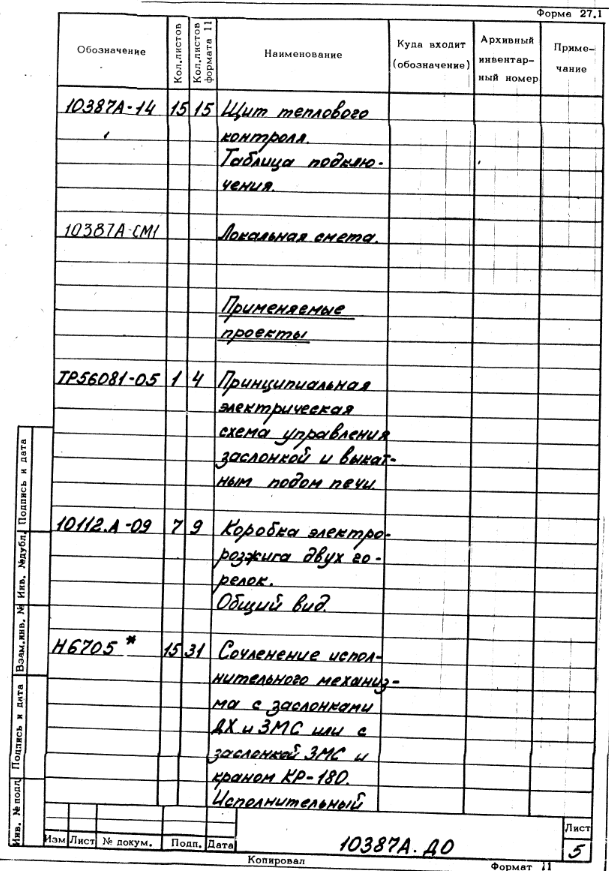 Форма 27.1
Обозначение
Кол.листов
Кол.листов формата 11
Наименование
Куда входит (обозначение)
Архивный инвентарный номер
Примечание
10387А-14 15 15 Щит теплового
контроля.
Таблица подклю-
чения.
10387А-СМ1 Локальная смета.
Применяемые
проекты
ТР56081-05 1 4 Принципиальная
электрическая
схема управления
заслонкой и выкат-
ным подом печи
10112.А-09 7 9 Коробка электро-
розжига двух го-
релок.
Общий вид.
Н6705 * 15 31 Сочленение испол-
нительного механиз-
ма с заслонками
ДХ и ЗМС или с
заслонкой ЗМС и
краном КР-180.
Исполнительный
Инв. № подл. Подпись и дата Взам.инв. № Инв. №дубл. Подпись и дата
Изм Лист № докум. Подп. Дата
10387А.ДО
Лист
5
Копировал
Формат 11